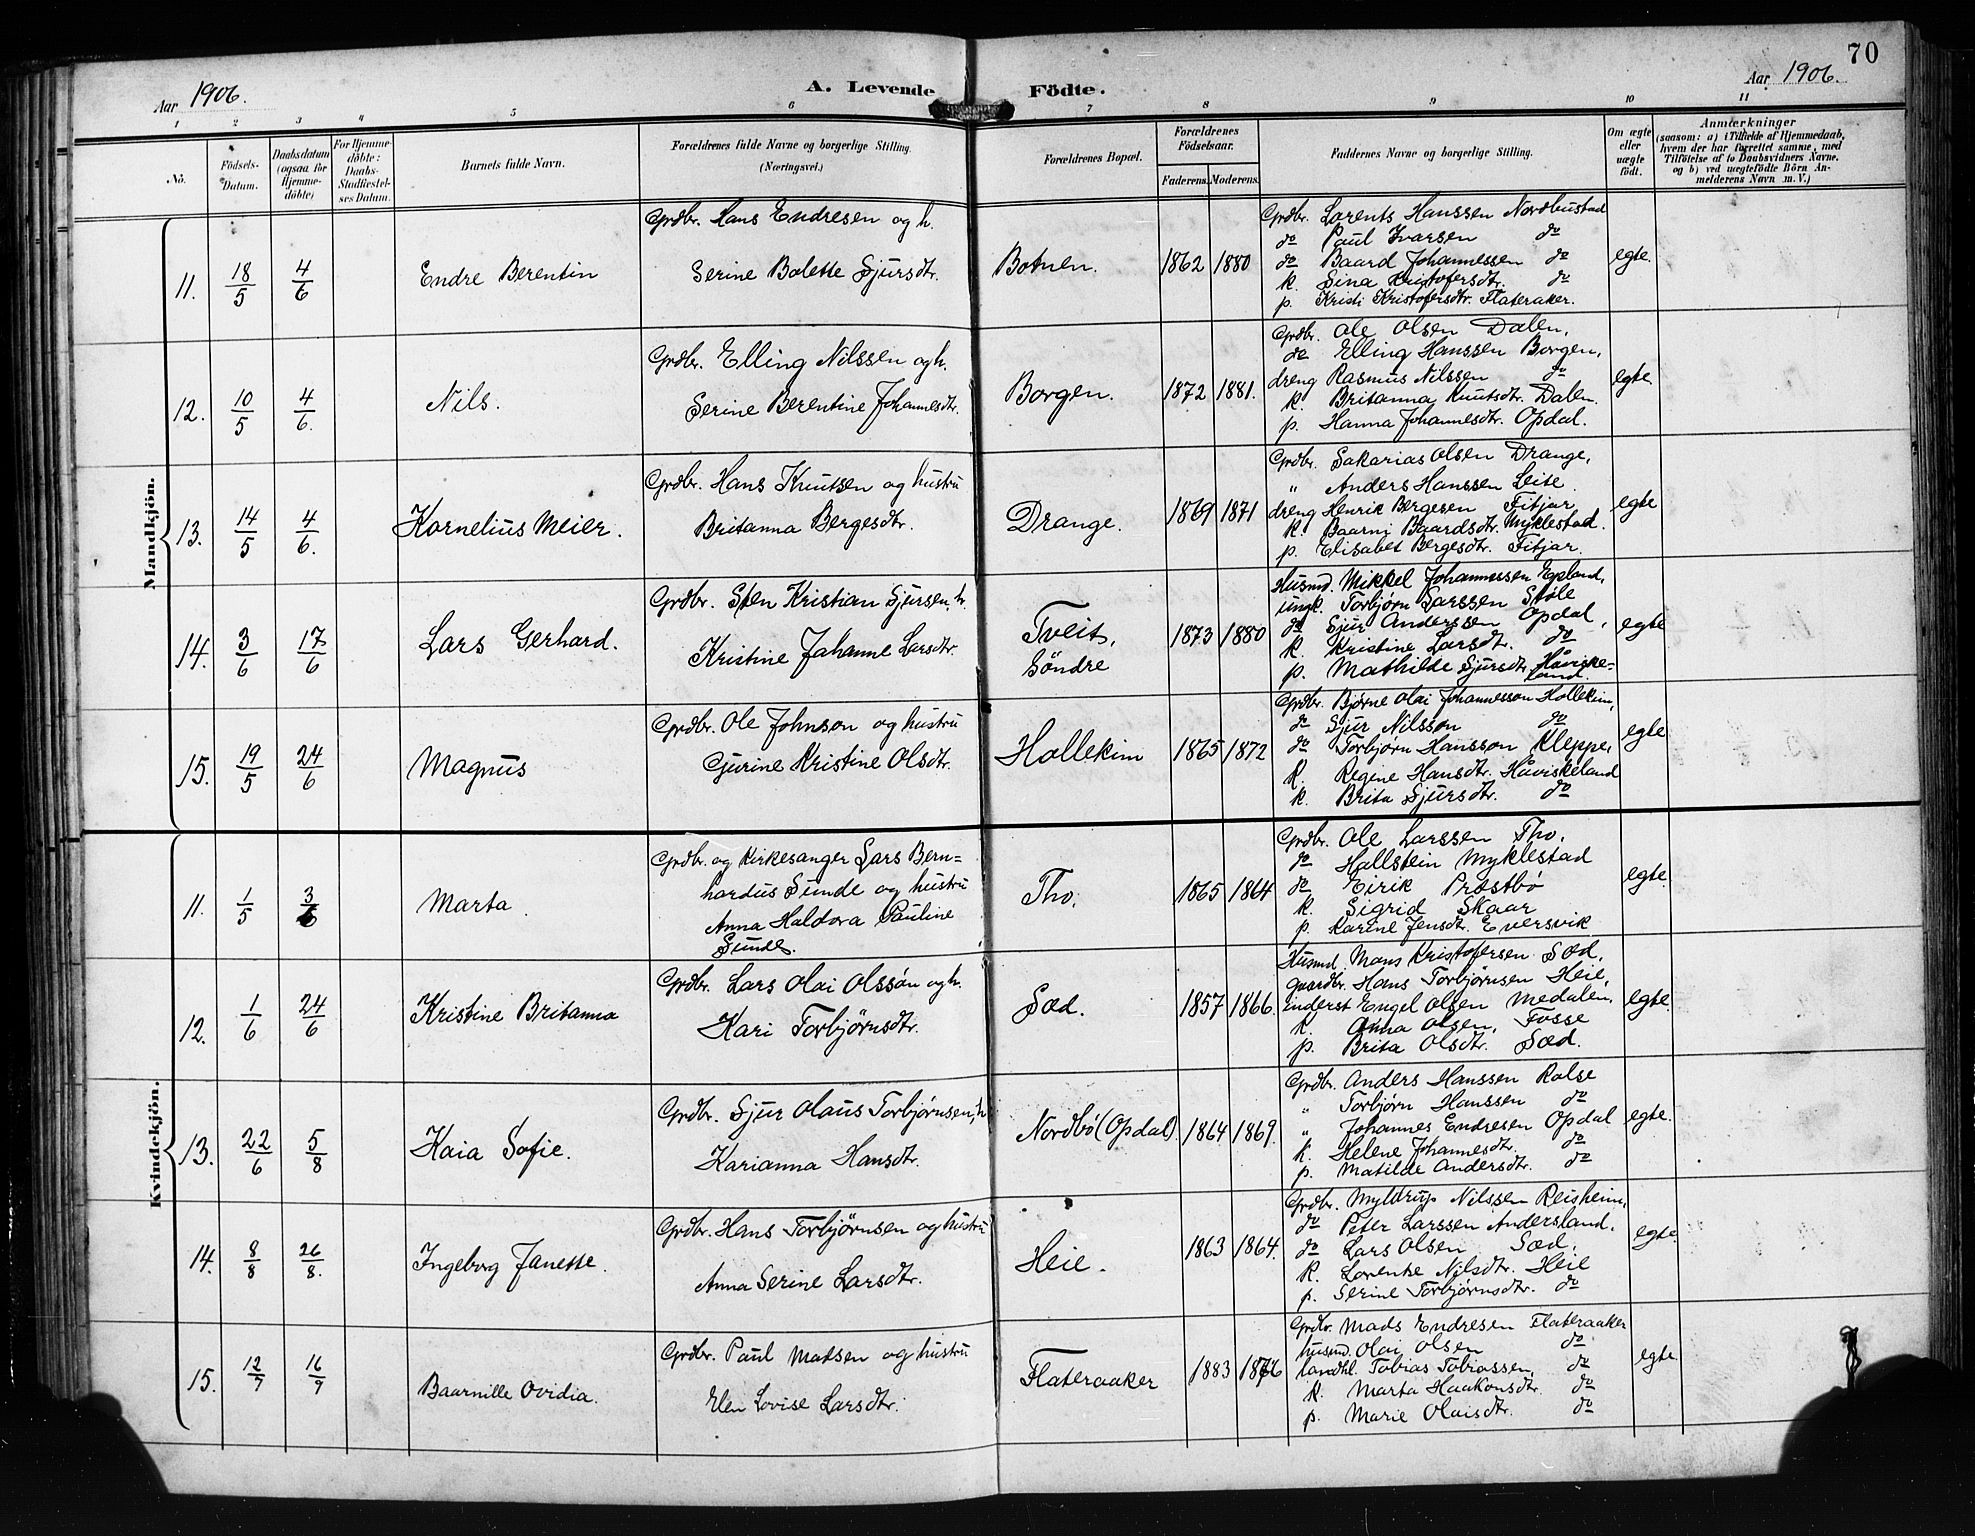 70
Aar 1906.
A. Levende Födte.
Aar 1906.
1 2 3 4 5 6 7 8 9 10 11
No.
Födsels-Datum.
Daabsdatum (ogsaa for Hjemmedöbte)
For Hjemmedöbte: Daabs-Stadfæstelses Datum.
Barnets fulde Navn.
Forældrenes fulde Navne og borgerlige Stilling. (Næringsvei.)
Forældrenes Bopæl.
Forældrenes Födselsaar.
Faderens. Moderens.
Faddernes Navne og borgerlige Stilling.
Om ægte eller uægte födt.
Anmærkninger
(saasom: a) i Tilfælde af Hjemmedaab, hvem der har forrettet samme, med Tilföielse af to Daabsvidners Navne. og b) ved uægtefödte Börn Anmelderens Navn m. V.)
Mandkjön.
11. 18/5 4/6 Endre Berentin
Grdbr. Hans Endresen og h.
Serine Bolette Sjursdtr.
Botnen. 1862 1880
Grdbr. Lorents Hanssen Nordhustad
do Paul Ivarsen do
do Baard Johannessen do
k. Sina Kristofersdtr. do
p. Kristi Kristofersdtr. Flateraker.
egte.
12. 10/5 4/6. Nils.
Grdbr. Elling Nilssen og h.
Serine Berentine Johannesdtr.
Borgen. 1872 1881.
Grdbr. Ole Olsen Dalen.
do Elling Hanssen Borgen.
dreng Rasmus Nilssen do
k. Britanna Knutsdtr. Dalen.
p. Hanna Johannesdtr. Opdal.
egte.
13. 14/5 4/6. Kornelius Meier.
Grdbr. Hans Knutsen og hustru
Britanna Bergesdtr.
Drange. 1869 1871
Grdbr. Sakarias Olsen Drange.
" Anders Hanssen Leite.
dreng Henrik Bergesen Fitjar
k. Baarni Baardsdtr. Myklestad.
p. Elisabet Bergesdtr. Fitjar.
egte
14. 3/6 17/6 Lars Gerhard.
Grdbr. Sten Kristian Sjursen, h.
Kristine Johanne Larsdtr.
Tveit, Söndre 1873 1880
Husmd. Mikkel Johannessen Epland,
ungk. Torbjørn Larssen Støle
do Sjur Anderssen Opdal,
k. Kristine Larsdtr. do
p. Mathilde Sjursdtr. Håviske-
land.
egte
15. 19/5 24/6 Magnus
Grdbr. Ole Johnson og hustru
Gurine Kristine Olsdtr.
Hollekim 1865 1872
Grdbr. Bjørne Olai Johannesson Hollekim,
do Sjur Nilsson do
do Torbjørn Hansson Kleppe,
k. Regine Hansdtr. Håviskeland
k. Brita Sjursdtr. do
egte
Kvindekjön.
11. 1/5 3/6 Marta.
Grdbr. og Kirkesanger Lars Bern=
hardus Sunde og hustru
Anna Haldora Pauline
Sunde.
Tho. 1865 1864
Grdbr. Ole Larssen Tho,
do Hallstein Myklestad
do Eirik Præstbö
k. Sigrid Skaar
p. Karine Jensdtr. Eversvik
egte.
12. 1/6 24/6 Kristine Britanna
Grdbr. Lars Olai Olssön og h.
Kari Torbjørnsdtr.
Sæd. 1857 1866.
Husmd. Mons Kristofersen Sæd,
gaardbr. Hans Torbjørnsen Heie,
inderst Engel Olsen Medalen,
k. Anna Olsen, Fosse
p. Brita Olsdtr. Sæd.
egte.
13. 22/6 5/8 Kaia Sofie.
Grdbr. Sjur Olaus Torbjørnsen, h
Karianna Hansdtr.
Nordbö (Opdal). 1864 1869.
Grdbr. Anders Hanssen Rolse
" Torbjörn Hanssen do
" Johannes Endresen Opdal
k. Helene Johannesdtr. do
p. Matilde Andersdtr. do
egte.
14. 8/8 26/8. Ingeborg Janette.
Grdbr. Hans Torbjörnsen og hustru
Anna Serine Larsdtr.
Heie. 1863 1864.
Grdbr. Myldrup Nilssen Reisheim,
do Peter Larssen Andersland.
do Lars Olsen Sæd.
k. Lorentse Nilsdtr. Heie
p. Serine Torbjørnsdtr. do
egte.
15. 12/7 16/9 Baarnille Ovidia.
Grdbr. Paul Madsen og hustru
Elen Lovise Larsdtr.
Flateraaker 1883 1876
Grdbr. Mads Endresen Flateraaker
husmd. Olai Olsen do
landhl. Tobias Tobiassen, do
k. Marta Haakonsdtr. do
p. Marie Olaisdtr. do
egte